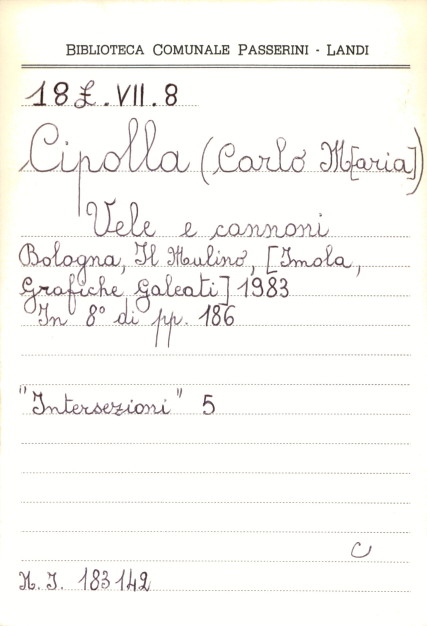 BIBLIOTECA COMUNALE PASSERINI - LANDI
18 £. VII. 8
Cipolla (Carlo M[aria])
Vele e cannoni
Bologna, Il Mulino, [Imola,
Grafiche Galeati] 1983
In 8° di pp. 186
"Intersezioni" 5
C
N. I. 183142